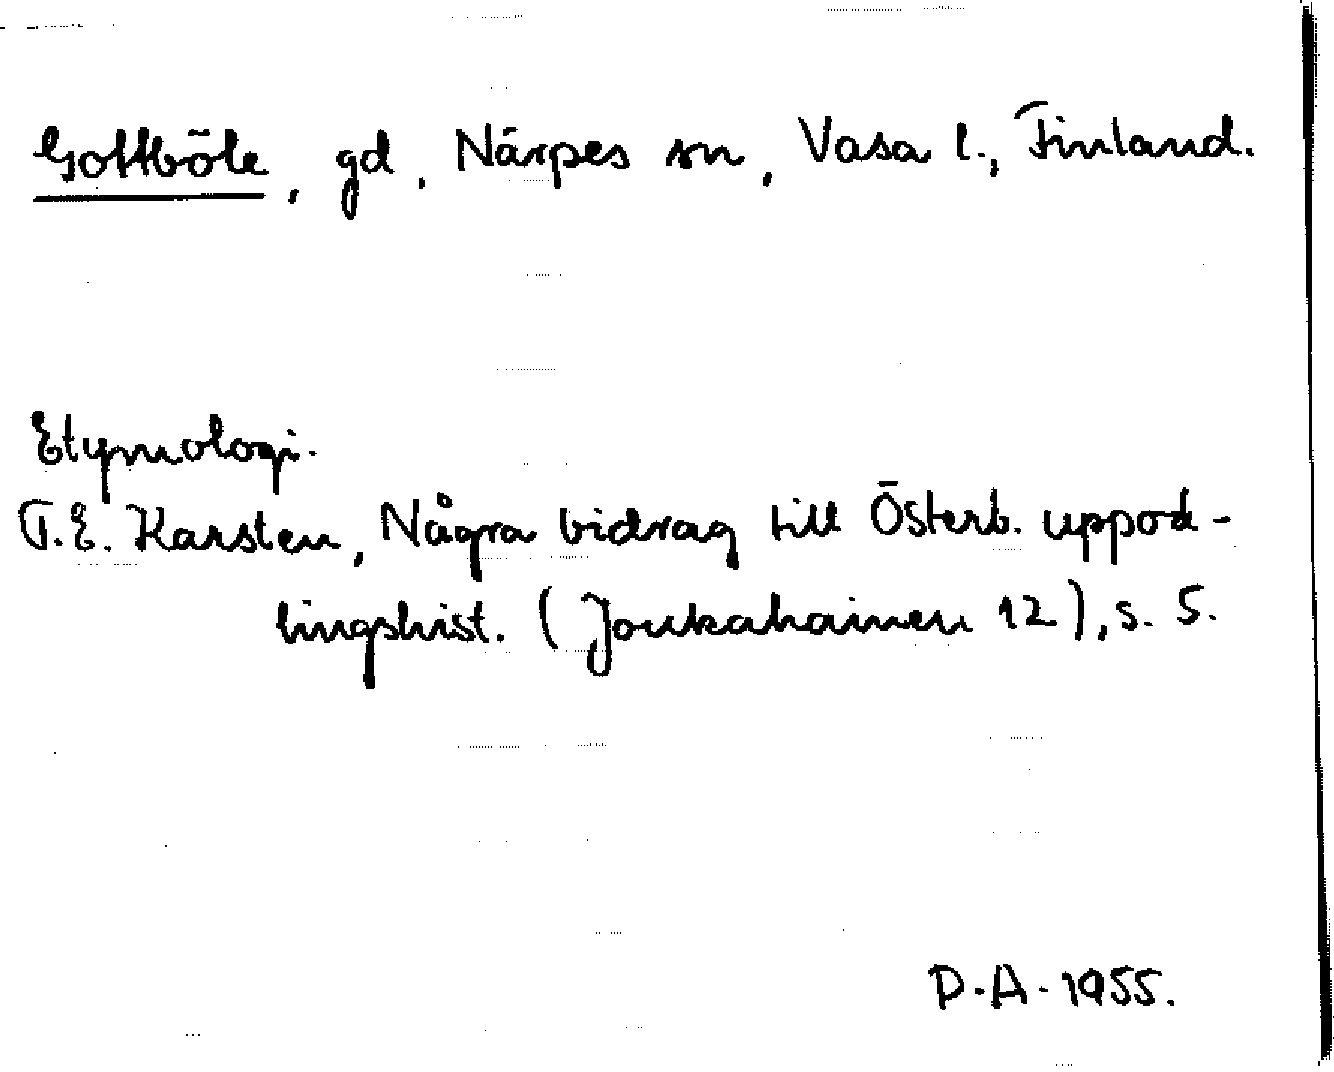 Gottböle, gd, Närpes sn, Vasa l., Finland.
Etymologi.
T.E. Karsten, Några bidrag till Österb. uppod-
lingshist. (Joukahainen 12), s. 5.
P.A. 1955.